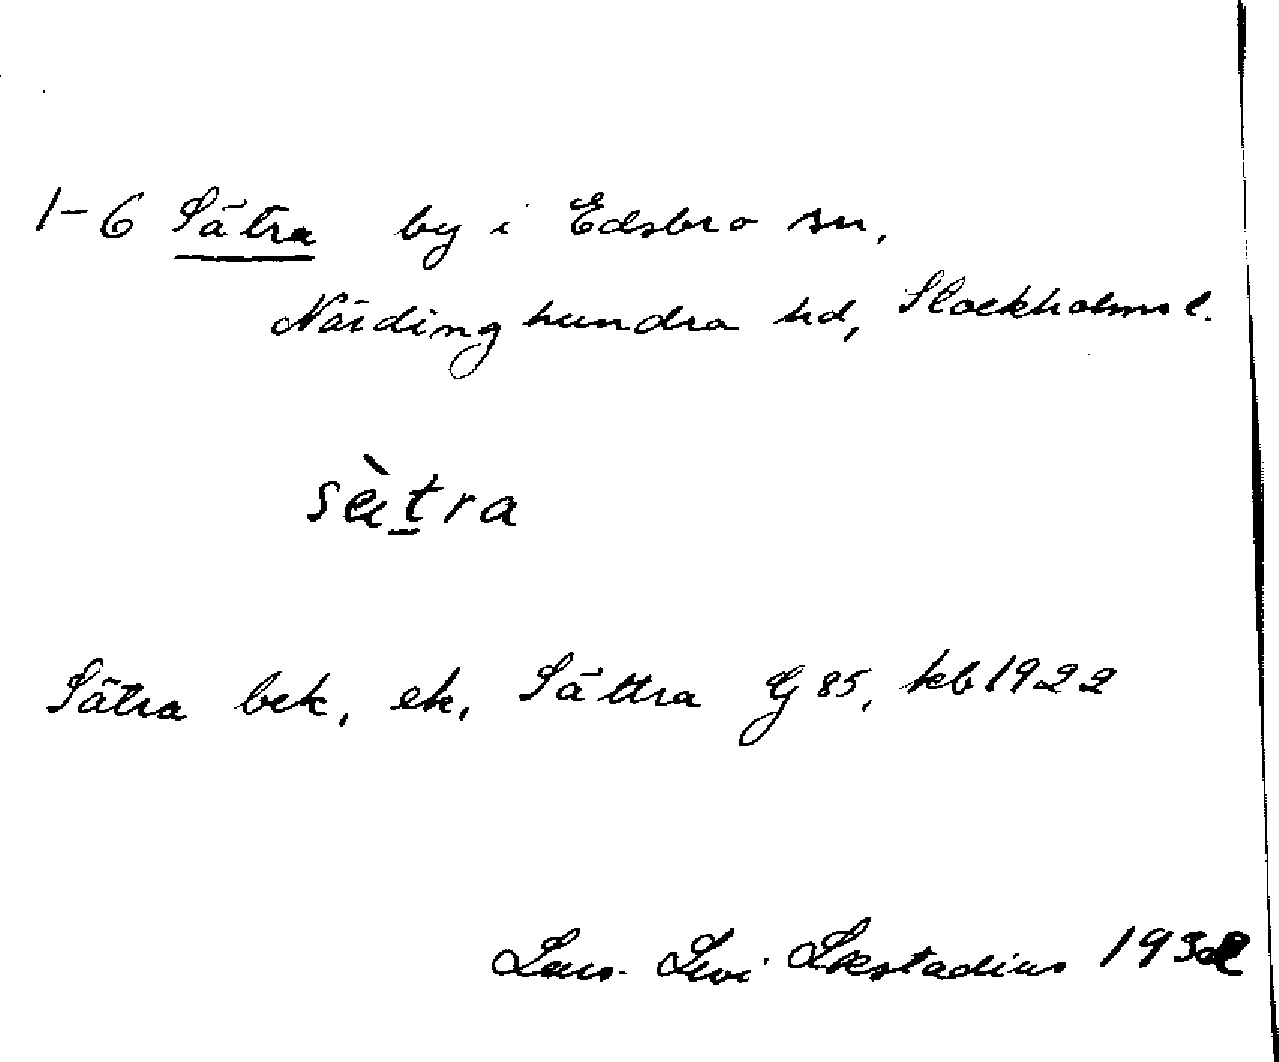 1-6 Sätra by i Edsbro sn,
Närdinghundra hd, Stockholms l.
sätra
Sätra bek, ek, Sättra G 85, kb 1922
Lars Levi Læstadius